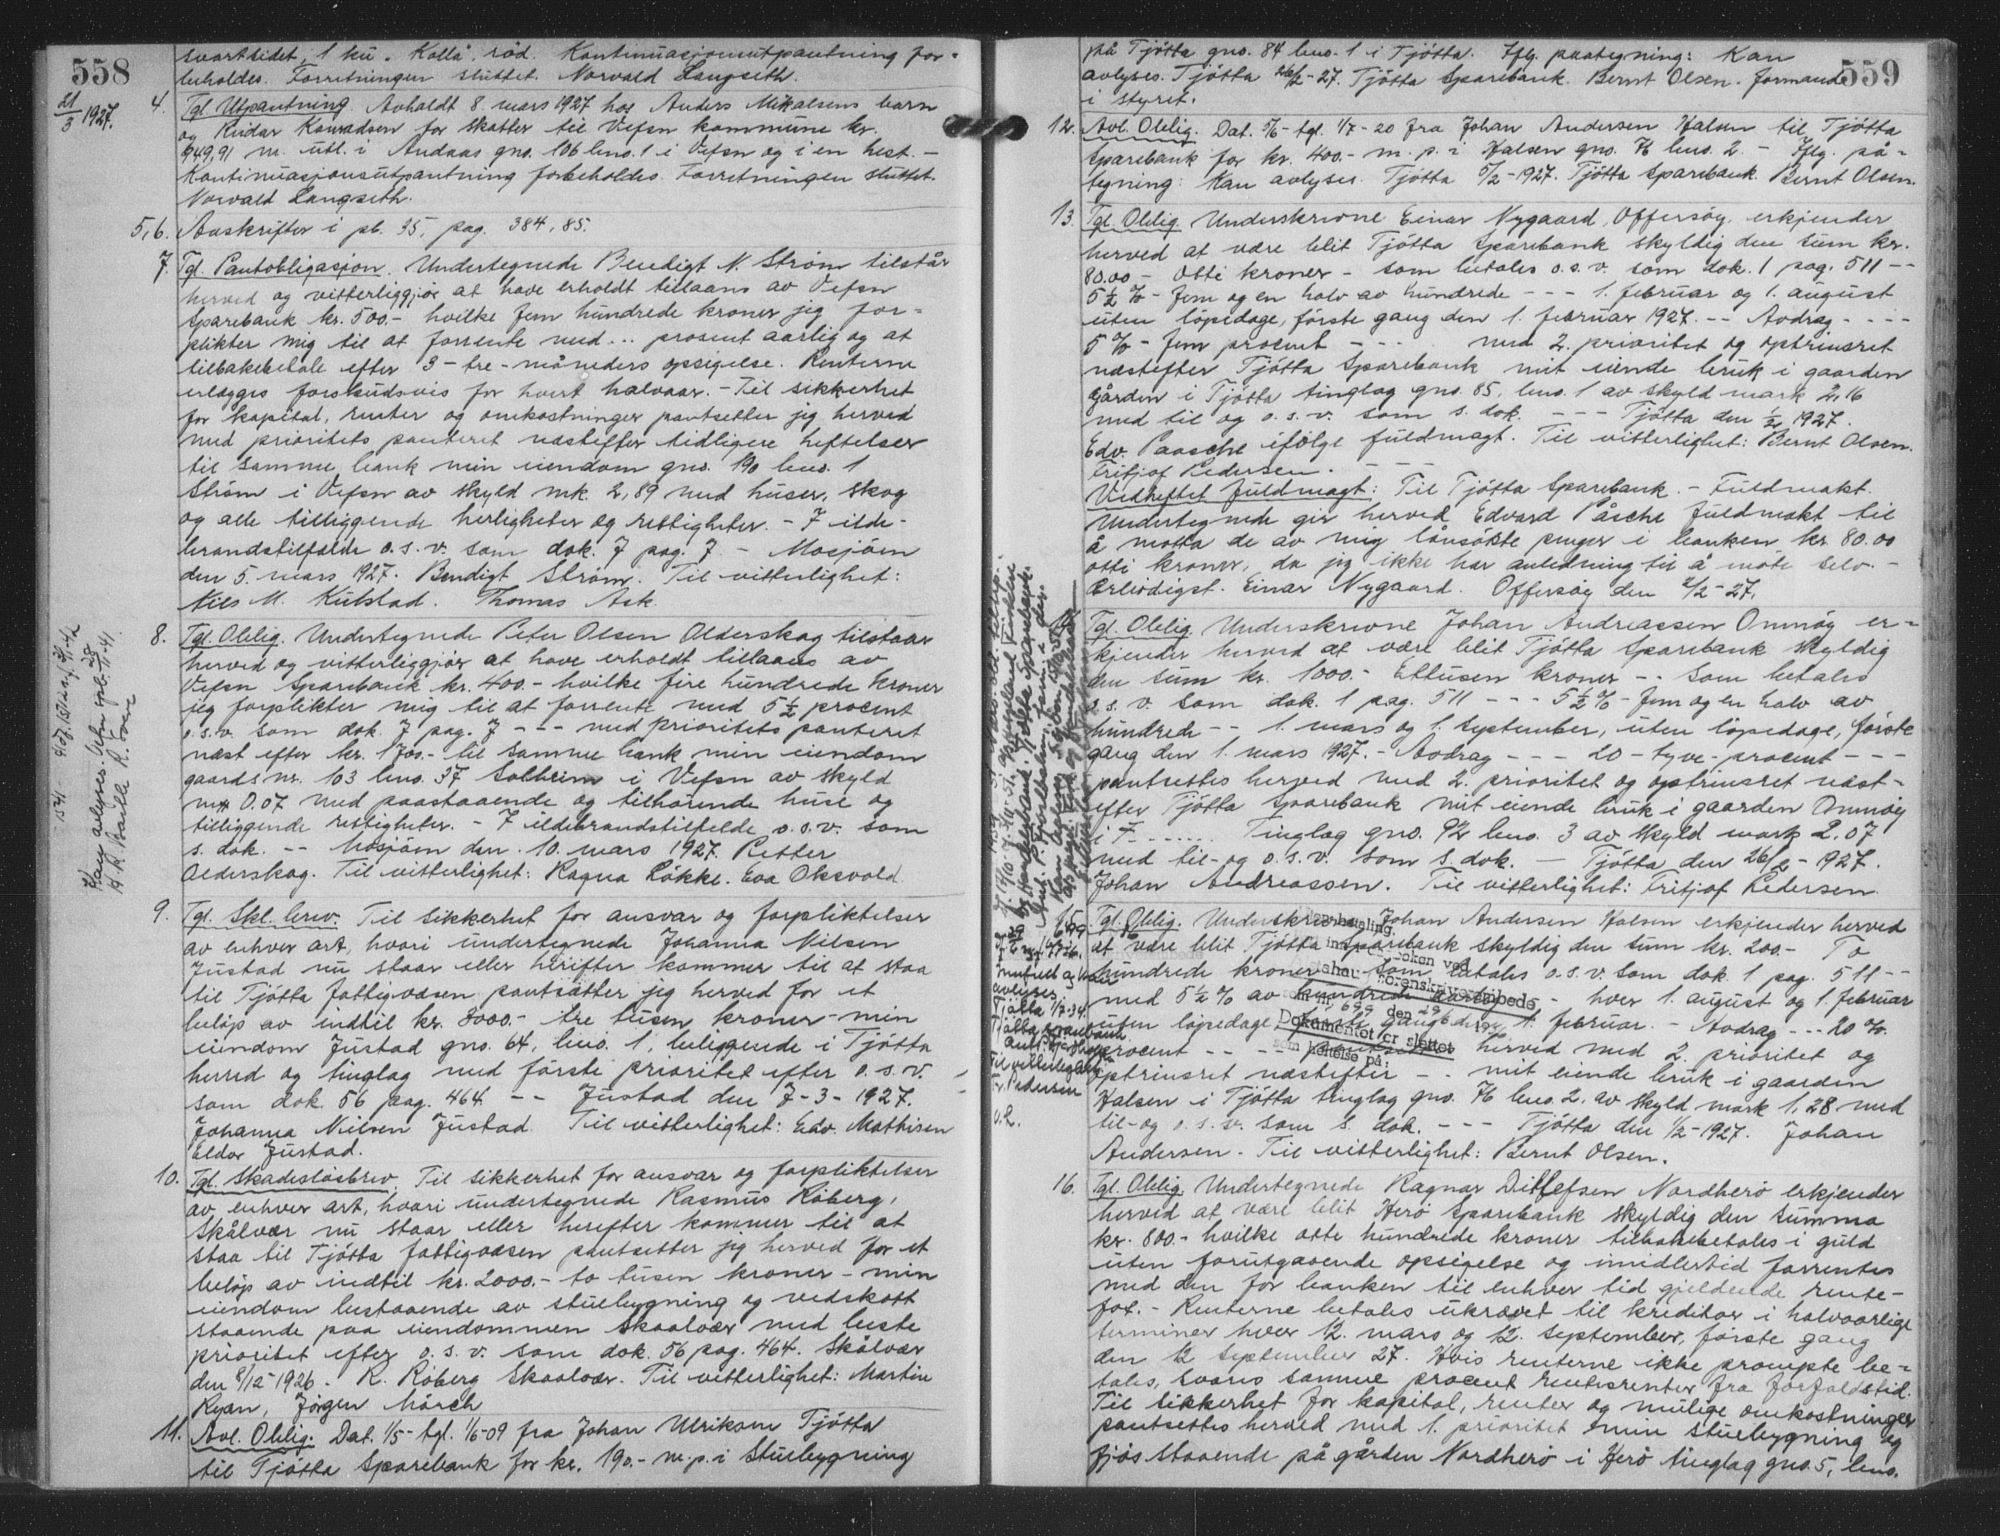 558
svartsidet, 1 ku. Kolla, rød. Kontinuasjonsutpantning for-
beholdes. Forretningen sluttet. Norvald Langseth.
21/3 1927.
4. Tgl. Utpantning. Avholdt 8. mars 1927 hos Anders Mikalsens barn
og Reidar Konradsen for skatter til Vefsn kommune kr.
949,91 m. utl. i Andaas gno. 106 bno. 1 i Vefsn og i en hest. -
Kontinuasjonsutpantning forbeholdes. Forretningen sluttet.
Norvald Langseth.
5,6. Avskrifter i pb. 35, pag. 384, 85.
7. Tgl. Pantobligasjon. Undertegnede Bendigt N. Strøm tilstår
herved og vitterliggjør at have erholdt tillaans av Vefsn
Sparebank kr. 500.- hvilke fem hundrede kroner jeg for-
plikter mig til at forrente med ... prosent aarlig og at
tilbakebetale efter 3 - tre - måneders opsigelse. Renterne
erlægges forskudsvis for hvert halvaar. - Til sikkerhet
for kapital, renter og omkostninger pantsetter jeg herved
med prioritets panteret næstefter tidligere heftelser
til samme bank min eiendom gno. 190 bno. 1
Strøm i Vefsn av skyld mk. 2,89 med huser, skog
og alle tilliggende herligheter og rettigheter. - I ilde-
brandstilfælde o.s.v. som dok. 7 pag. 7. - Mosjøen
den 5. mars 1927. Bendigt Strøm. Til vitterlighet:
Nils M. Kulstad. Thomas Ask.
8. Tgl. Oblig. Undertegnede Peter Olsen Alderskog tilstaar
herved og vitterliggjør at have erholdt tillaans av
Vefsn Sparebank kr. 400.- hvilke fire hundrede kroner
jeg forplikter mig til at forrente med 5½ procent
o.s.v. som dok. 7 pag. 7 - - - med prioritets panteret
næst efter kr. 1700.- til samme bank min eiendom
gaards nr. 103 bno. 37 Solheim i Vefsn av skyld
mk 0.07 med paastaaende og tilhørende huse og
tilliggende rettigheter. - I ildebrandstilfelde o.s.v. som
s. dok. -- Mosjøen den 10. mars 1927. Petter
Alderskog. Til vitterlighet: Ragna Løkke. Eva Oksvold.
Kan avlyses.
9. Tgl. Skl. brev. Til sikkerhet for ansvar og forpliktelser
av enhver art, hvori undertegnede Johanna Nilsen
Justad nu staar eller herefter kommer til at staa
til Tjøtta fattigvæsen pantsætter jeg herved for et
beløp av indtil kr. 3000.- tre tusen kroner - min
eiendom Justad gno. 64, bno. 1, beliggende i Tjøtta
herred og tinglag med første prioritet efter o.s.v.
som dok. 56 pag. 464 -- Justad den 7-3-1927.
Johanna Nilsen Justad. Til vitterlighet: Edv. Mathisen
Eldor Justad.
10. Tgl. Skadesløsbrev. Til sikkerhet for ansvar og forpliktelser
av enhver art, hvori undertegnede Rasmus Røberg,
Skålvær nu staar eller herefter kommer til at
staa til Tjøtta fattigvæsen pantsetter jeg herved for et
beløp av indtil kr. 2000.- to tusen kroner - min
eiendom bestaaende av stuebygning og vedskott
staaende paa eiendommen Skaalvær med beste
prioritet efter o.s.v. som dok. 56 pag. 464. Skålvær
den 8/12-1926. R. Røberg Skaalvær. Til vitterlighet: Martin
Ryan, Jørgen Mørch
11. Avl. Oblig. Dat. 1/5- tgl. 1/6-09 fra Johan Ulriksen Tjøtta
til Tjøtta Sparebank for kr. 190.- m.p. i stuebygning
559
på Tjøtta gno. 84 bno. 1 i Tjøtta. Iflg. paategning: Kan
avlyses. Tjøtta 26/2-27. Tjøtta Sparebank. Bernt Olsen. formand
i styret.
12. Avl. Oblig. Dat. 5/6- tgl. 1/7-20 fra Johan Andersen Halsen til Tjøtta
Sparebank for kr. 400.- m.p. i Halsen gno. 76 bno. 2. - Iflg. på-
tegning: Kan avlyses. Tjøtta 5/2-1927. Tjøtta Sparebank. Bernt Olsen.
13. Tgl. Oblig. Underskrevne Einar Nygaard, Offersøy, erkjender
herved at være blit Tjøtta Sparebank skyldig den sum kr.
80.00 - Otti kroner - som betales o.s.v. som dok. 1 pag. 511 --
5½ % - fem og en halv av hundrede - - - 1. februar og 1. august
uten løpedage, første gang den 1. februar 1927. -- Avdrag - - - -
5 % - fem procent - - - - med 2. prioritet og optrinsret
næstefter Tjøtta Sparebank mit eiende bruk i gaarden
Gården i Tjøtta tinglag gno. 85, bno. 1 av skyld mark 2,16
med til og o.s.v. som s. dok. - - - Tjøtta den 1/2 1927.
Edv. Paasche ifølge fuldmagt. Til vitterlighet: Bernt Olsen.
Fritjof Pedersen.
Vedheftet fuldmagt: Til Tjøtta Sparebank. - Fuldmakt.
Undertegnede gir herved Edvard Påsche fuldmakt til
å motta de av mig lånsøkte penger i banken kr. 80.00
otti kroner, da jeg ikke har anledning til å møte selv. -
Ærbødigst. Einar Nygaard. Offersøy den 2/2-27.
Tgl. Oblig. Underskrevne Johan Andreassen Omnøy er-
kjender herved at være blit Tjøtta Sparebank skyldig
den sum kr. 1000.- Ettusen kroner -- som betales
o.s.v. som dok. 1 pag. 511 - - - 5½ % - fem og en halv av
hundrede -- 1. mars og 1. september, uten løpedage, første
gang den 1. mars 1927. - Avdrag - - - 20 - tyve - procent - - -
pantsettes herved med 2. prioritet og optrinsret næst-
efter Tjøtta Sparebank mit eiende bruk i gaarden Omnøy
i T...... Tinglag gno. 92 bno. 3 av skyld mark 2.07
med til- og o.s.v. som s. dok. - Tjøtta den 26/2-1927.
Johan Andreassen. Til vitterlighet: Fritjof Pedersen.
15. Tgl. Oblig. Underskrevne Johan Andersen Halsen erkjender herved
at være blit Tjøtta Sparebank skyldig den sum kr. 200.- To
hundrede kroner som betales o.s.v. som dok 1 pag. 511 --
med 5½ % av hundrede aarlig - hver 1. august og 1. februar
uten løpedage, første gang den 1. februar. - Avdrag --- 20 %
procent -- -- pantsettes herved med 2. prioritet og
optrinsret næstefter -- mit eiende bruk i gaarden
Halsen i Tjøtta tinglag gno. 76 bno. 2. av skyld mark 1.28 med
til- og o.s.v. som s. dok. - - - Tjøtta den 1/2-1927. Johan
Andersen. Til vitterlighet: Bernt Olsen.
Dokumentet er slettet
som heftelse på:
16. Tgl. Oblig. Undertegnede Ragnar Ditlefsen Nordherø erkjender
herved at være blit Herø Sparebank skyldig den summa
kr. 800.- hvilke otte hundrede kroner tilbakebetales i guld
uten forutgaaende opsigelse og imidlertid forrentes
med den for banken til enhver tid gjeldende rente-
fot. - Renterne betales ukrævet til kreditor i halvaarlige
terminer hver 12. mars og 12. september, første gang
den 12 september 27. Hvis renterne ikke prompte be-
tales, svares samme procent rentesrenter fra forfaldstid.
Til sikkerhet for kapital, renter og mulige omkostninger
pantsettes herved med 1. prioritet min stuebygning og
fjøs staaende på gården Nordherø i Herø tinglag gno. 5, bno.